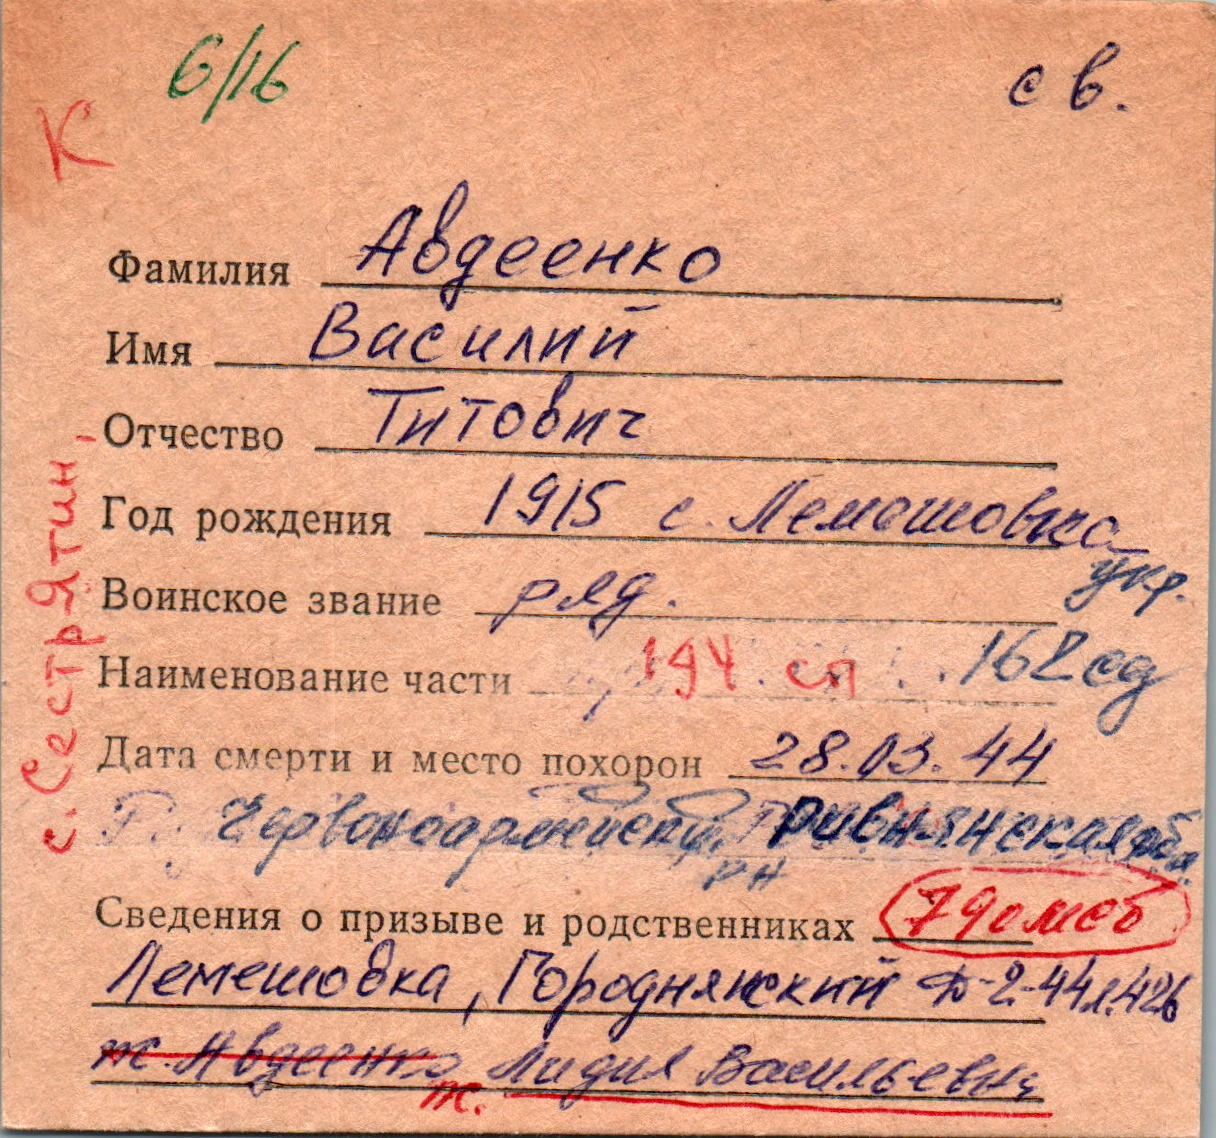 6/16
св.
К
Фамилия Авдеенко
Имя Василий
Отчество Титович
Год рождения 1915 с. Лемешовка
укр.
Воинское звание ряд.
Наименование части 194 сп 162 сд
Дата смерти и место похорон 28.03.44
Червоноармейский Ривнянская обл.
рн
Сведения о призыве и родственниках 79 омсб
Лемешовка, Городнянский Ф-2-44л.426
ж. Авдеенко Лидия Васильевна
ж.
с. Сестрятин,